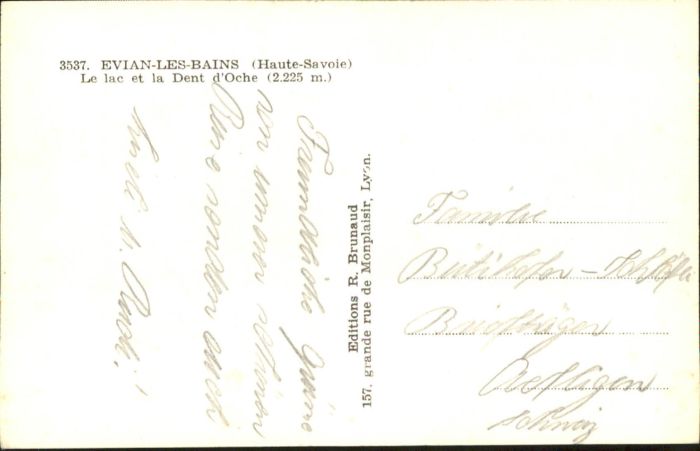 3537. EVIAN-LES-BAINS (Haute-Savoie)
Le lac et la Dent d'Oche (2.225 m.)
Freundliche Grüsse
von unserer schönen
Reise senden euch
Editions R. Brunaud
157, grande rue de Monplaisir, Lyon.
Familie
Bütikofer
Briefträger
Schweiz